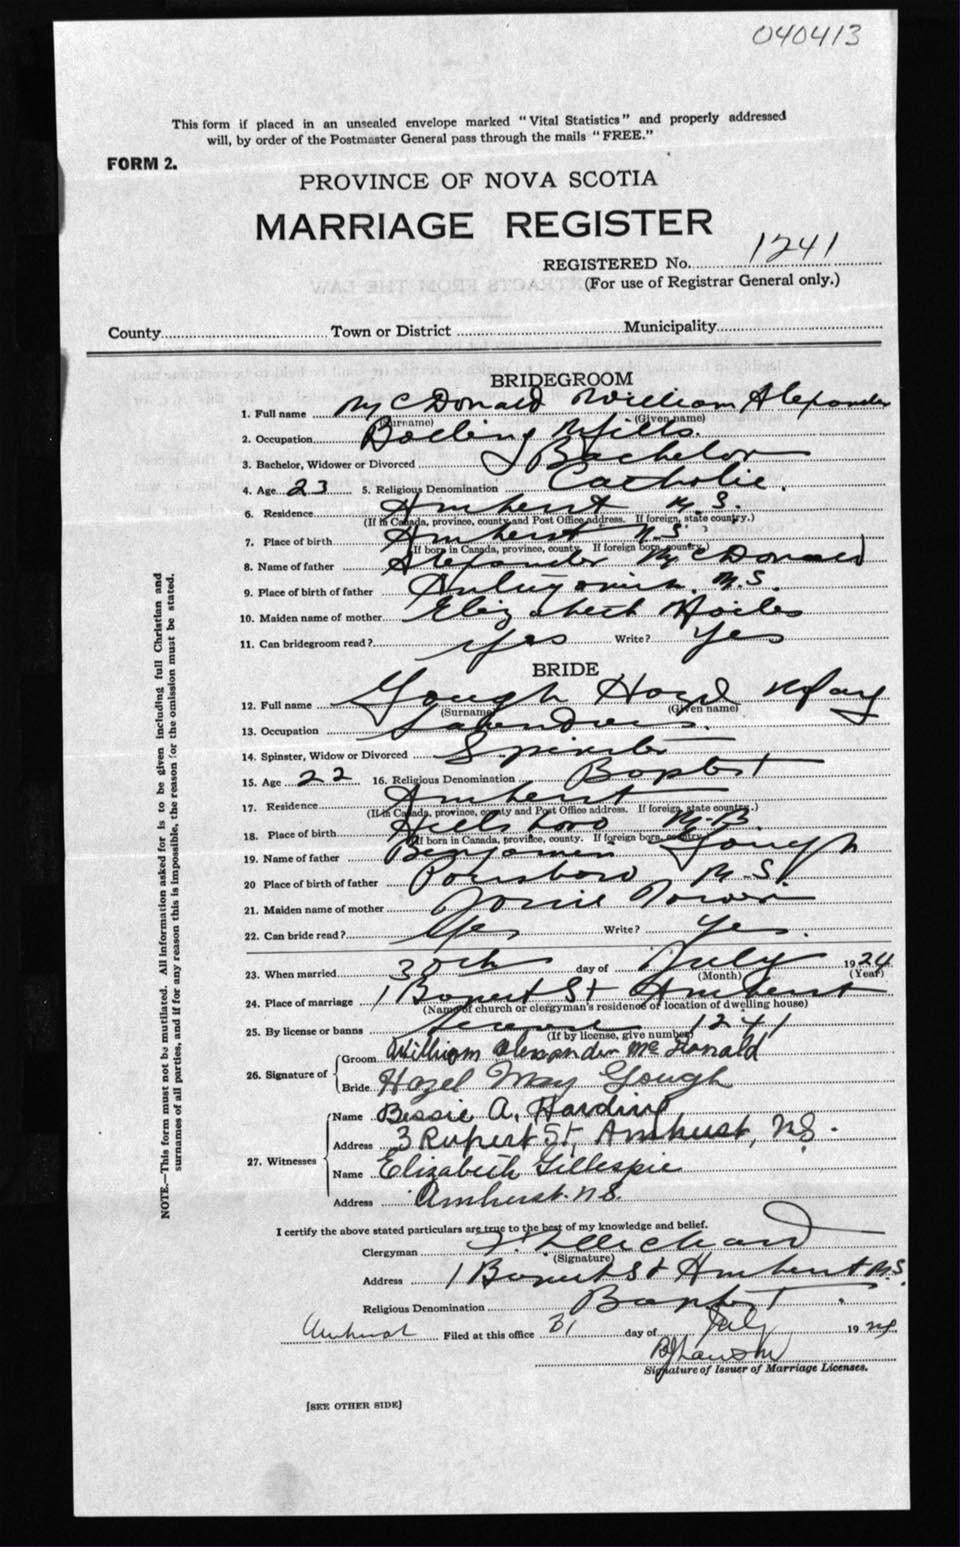 040413
This form if placed in an unsealed envelope marked "Vital Statistics" and properly addressed
will, by order of the Postmaster General pass through the mails "FREE."
FORM 2.
PROVINCE OF NOVA SCOTIA
MARRIAGE REGISTER
REGISTERED No. 1241
(For use of Registrar General only.)
County Town or District Municipality
BRIDEGROOM
1. Full name McDonald William Alexander
(Surname) (Given name)
2. Occupation Mills.
3. Bachelor, Widower or Divorced Bachelor
4. Age 23 5. Religious Denomination Catholic.
6. Residence Amherst N.S.
(If in Canada, province, county and Post Office address. If foreign, state country.)
7. Place of birth Amherst N.S.
(If born in Canada, province, county. If foreign born, country.)
8. Name of father Alexander McDonald
9. Place of birth of father N.S.
10. Maiden name of mother Elizabeth
11. Can bridegroom read? Yes Write? Yes
BRIDE
12. Full name Gough Hazel May
(Surname) (Given name)
13. Occupation
14. Spinster, Widow or Divorced Spinster
15. Age 22 16. Religious Denomination Baptist
17. Residence Amherst
(If in Canada, province, county and Post Office address. If foreign, state country.)
18. Place of birth Hillsboro N.B.
(If born in Canada, province, county. If foreign born, country.)
19. Name of father Benjamin Gough
20 Place of birth of father N.S.
21. Maiden name of mother
22. Can bride read? Yes Write? Yes.
23. When married 30th day of July 1924
(Month) (Year)
24. Place of marriage 1 Rupert St Amherst
(Name of church or clergyman's residence or location of dwelling house)
25. By license or banns License 1241
(If by license, give number)
26. Signature of Groom William Alexander McDonald
Bride Hazel May Gough
27. Witnesses Name Bessie A. Harding
Address 3 Rupert St, Amherst, N.S.
Name Elizabeth Gillespie
Address Amherst. N.S.
I certify the above stated particulars are true to the best of my knowledge and belief.
Clergyman
(Signature)
Address 1 Rupert St Amherst N.S.
Religious Denomination Baptist.
Amherst Filed at this office 31 day of July 1924
Signature of Issuer of Marriage Licenses.
[SEE OTHER SIDE]
NOTE.—This form must not be mutilated. All information asked for is to be given including full Christian and
surnames of all parties, and if for any reason this is impossible, the reason for the omission must be stated.